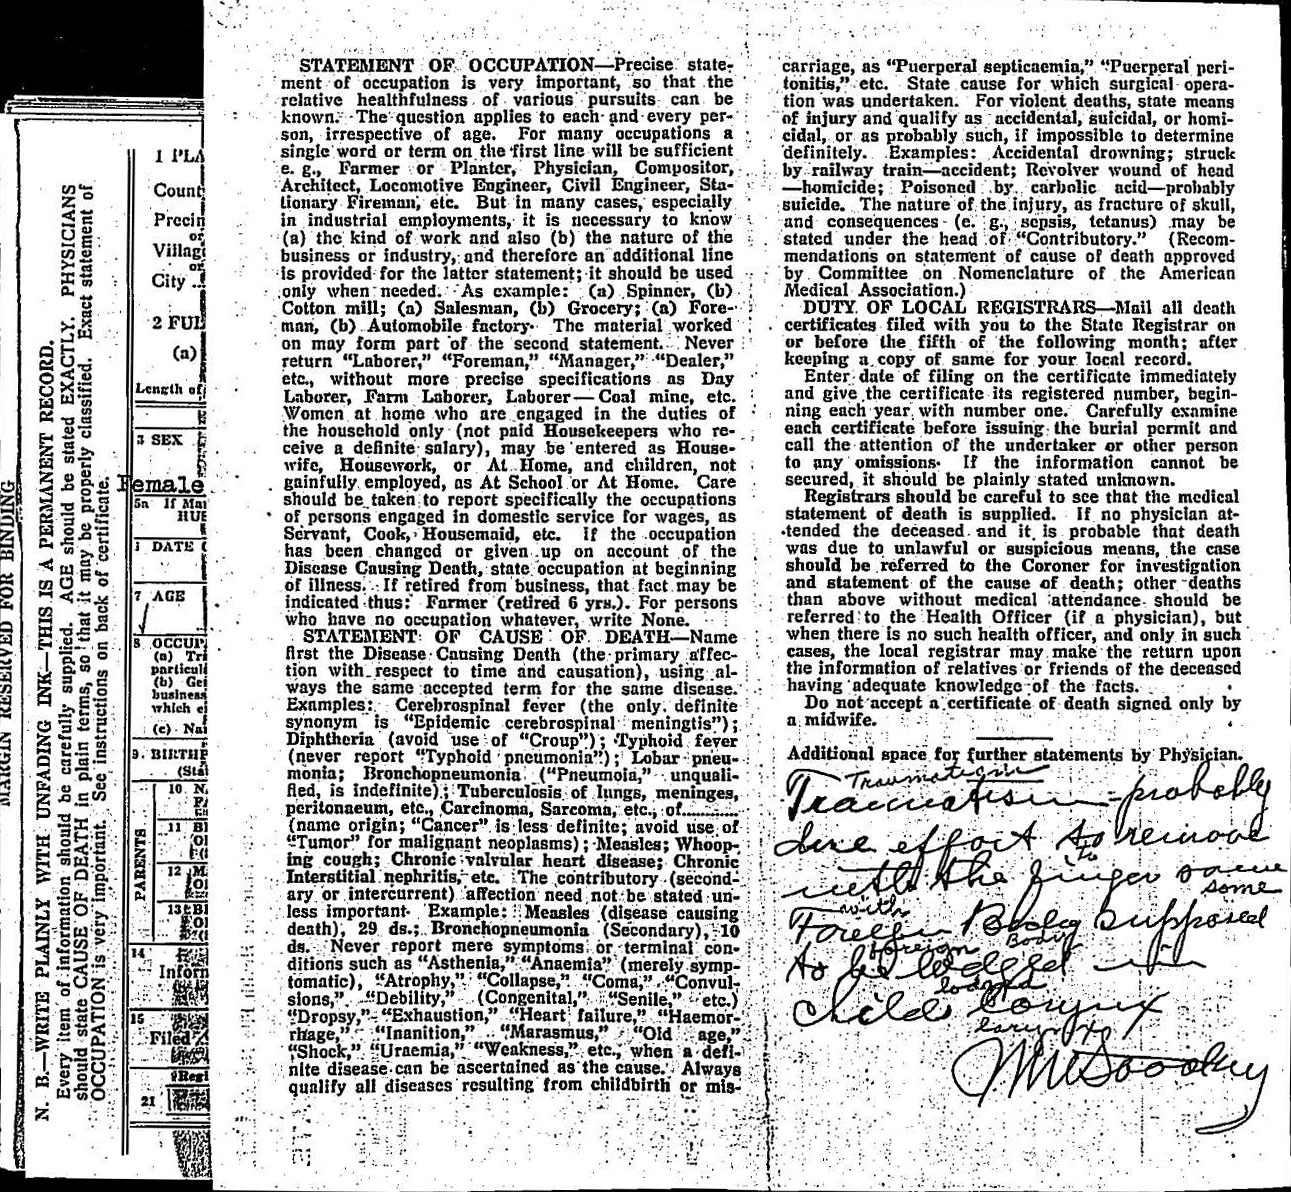 MARGIN RESERVED FOR BINDING
N. B.—WRITE PLAINLY WITH UNFADING INK—THIS IS A PERMANENT RECORD.
Every item of information should be carefully supplied. AGE should be stated EXACTLY. PHYSICIANS
should state CAUSE OF DEATH in plain terms, so that it may be properly classified. Exact statement of
OCCUPATION is very important. See instructions on back of certificate.
1 PLA
Count
Precin
or
Villag
or
City ..
2 FUL
(a)
Length of
3 SEX
Female
5a If Mar
HUS
DATE
7 AGE
8 OCCUP
(a) Tri
particul
(b) Gei
business
which e
(c) Na
9. BIRTHP
(Sta
PARENTS
10 N
11 BI
12 M
13 BI
14
Inform
15
Filed
Regi
21
STATEMENT OF OCCUPATION—Precise state-
ment of occupation is very important, so that the
relative healthfulness of various pursuits can be
known. The question applies to each and every per-
son, irrespective of age. For many occupations a
single word or term on the first line will be sufficient
e. g., Farmer or Planter, Physician, Compositor,
Architect, Locomotive Engineer, Civil Engineer, Sta-
tionary Fireman, etc. But in many cases, especially
in industrial employments, it is necessary to know
(a) the kind of work and also (b) the nature of the
business or industry, and therefore an additional line
is provided for the latter statement; it should be used
only when needed. As example: (a) Spinner, (b)
Cotton mill; (a) Salesman, (b) Grocery; (a) Fore-
man, (b) Automobile factory. The material worked
on may form part of the second statement. Never
return "Laborer," "Foreman," "Manager," "Dealer,"
etc., without more precise specifications as Day
Laborer, Farm Laborer, Laborer—Coal mine, etc.
Women at home who are engaged in the duties of
the household only (not paid Housekeepers who re-
ceive a definite salary), may be entered as House-
wife, Housework, or At Home, and children, not
gainfully employed, as At School or At Home. Care
should be taken to report specifically the occupations
of persons engaged in domestic service for wages, as
Servant, Cook, Housemaid, etc. If the occupation
has been changed or given up on account of the
Disease Causing Death, state occupation at beginning
of illness. If retired from business, that fact may be
indicated thus: Farmer (retired 6 yrs.). For persons
who have no occupation whatever, write None.
STATEMENT OF CAUSE OF DEATH—Name
first the Disease Causing Death (the primary affec-
tion with respect to time and causation), using al-
ways the same accepted term for the same disease.
Examples: Cerebrospinal fever (the only definite
synonym is "Epidemic cerebrospinal meningtis");
Diphtheria (avoid use of "Croup"); Typhoid fever
(never report "Typhoid pneumonia"); Lobar pneu-
monia; Bronchopneumonia ("Pneumoia," unquali-
fied, is indefinite); Tuberculosis of lungs, meninges,
peritonaeum, etc., Carcinoma, Sarcoma, etc., of............
(name origin; "Cancer" is less definite; avoid use of
"Tumor" for malignant neoplasms); Measles; Whoop-
ing cough; Chronic valvular heart disease; Chronic
Interstitial nephritis, etc. The contributory (second-
ary or intercurrent) affection need not be stated un-
less important. Example: Measles (disease causing
death), 29 ds.; Bronchopneumonia (Secondary), 10
ds. Never report mere symptoms or terminal con-
ditions such as "Asthenia," "Anaemia" (merely symp-
tomatic), "Atrophy," "Collapse," "Coma," "Convul-
sions," "Debility," (Congenital," "Senile," etc.)
"Dropsy," "Exhaustion," "Heart failure," "Haemor-
rhage," "Inanition," "Marasmus," "Old age,"
"Shock," "Uraemia," "Weakness," etc., when a defi-
nite disease can be ascertained as the cause. Always
qualify all diseases resulting from childbirth or mis-
carriage, as "Puerperal septicaemia," "Puerperal peri-
tonitis," etc. State cause for which surgical opera-
tion was undertaken. For violent deaths, state means
of injury and qualify as accidental, suicidal, or homi-
cidal, or as probably such, if impossible to determine
definitely. Examples: Accidental drowning; struck
by railway train—accident; Revolver wound of head
—homicide; Poisoned by carbolic acid—probably
suicide. The nature of the injury, as fracture of skull,
and consequences (e. g., sepsis, tetanus) may be
stated under the head of "Contributory." (Recom-
mendations on statement of cause of death approved
by Committee on Nomenclature of the American
Medical Association.)
DUTY OF LOCAL REGISTRARS—Mail all death
certificates filed with you to the State Registrar on
or before the fifth of the following month; after
keeping a copy of same for your local record.
Enter date of filing on the certificate immediately
and give the certificate its registered number, begin-
ning each year with number one. Carefully examine
each certificate before issuing the burial permit and
call the attention of the undertaker or other person
to any omissions. If the information cannot be
secured, it should be plainly stated unknown.
Registrars should be careful to see that the medical
statement of death is supplied. If no physician at-
tended the deceased and it is probable that death
was due to unlawful or suspicious means, the case
should be referred to the Coroner for investigation
and statement of the cause of death; other deaths
than above without medical attendance should be
referred to the Health Officer (if a physician), but
when there is no such health officer, and only in such
cases, the local registrar may make the return upon
the information of relatives or friends of the deceased
having adequate knowledge of the facts.
Do not accept a certificate of death signed only by
a midwife.
Additional space for further statements by Physician.
Traumatism
Traumatism—probably
due effort to remove
to
with the finger some
with some
Foreign Body supposed
foreign Body
to be lodged in
lodged
Child larynx
larynx